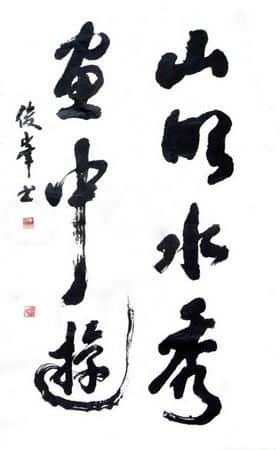 山明水秀
画中游
俊峰书